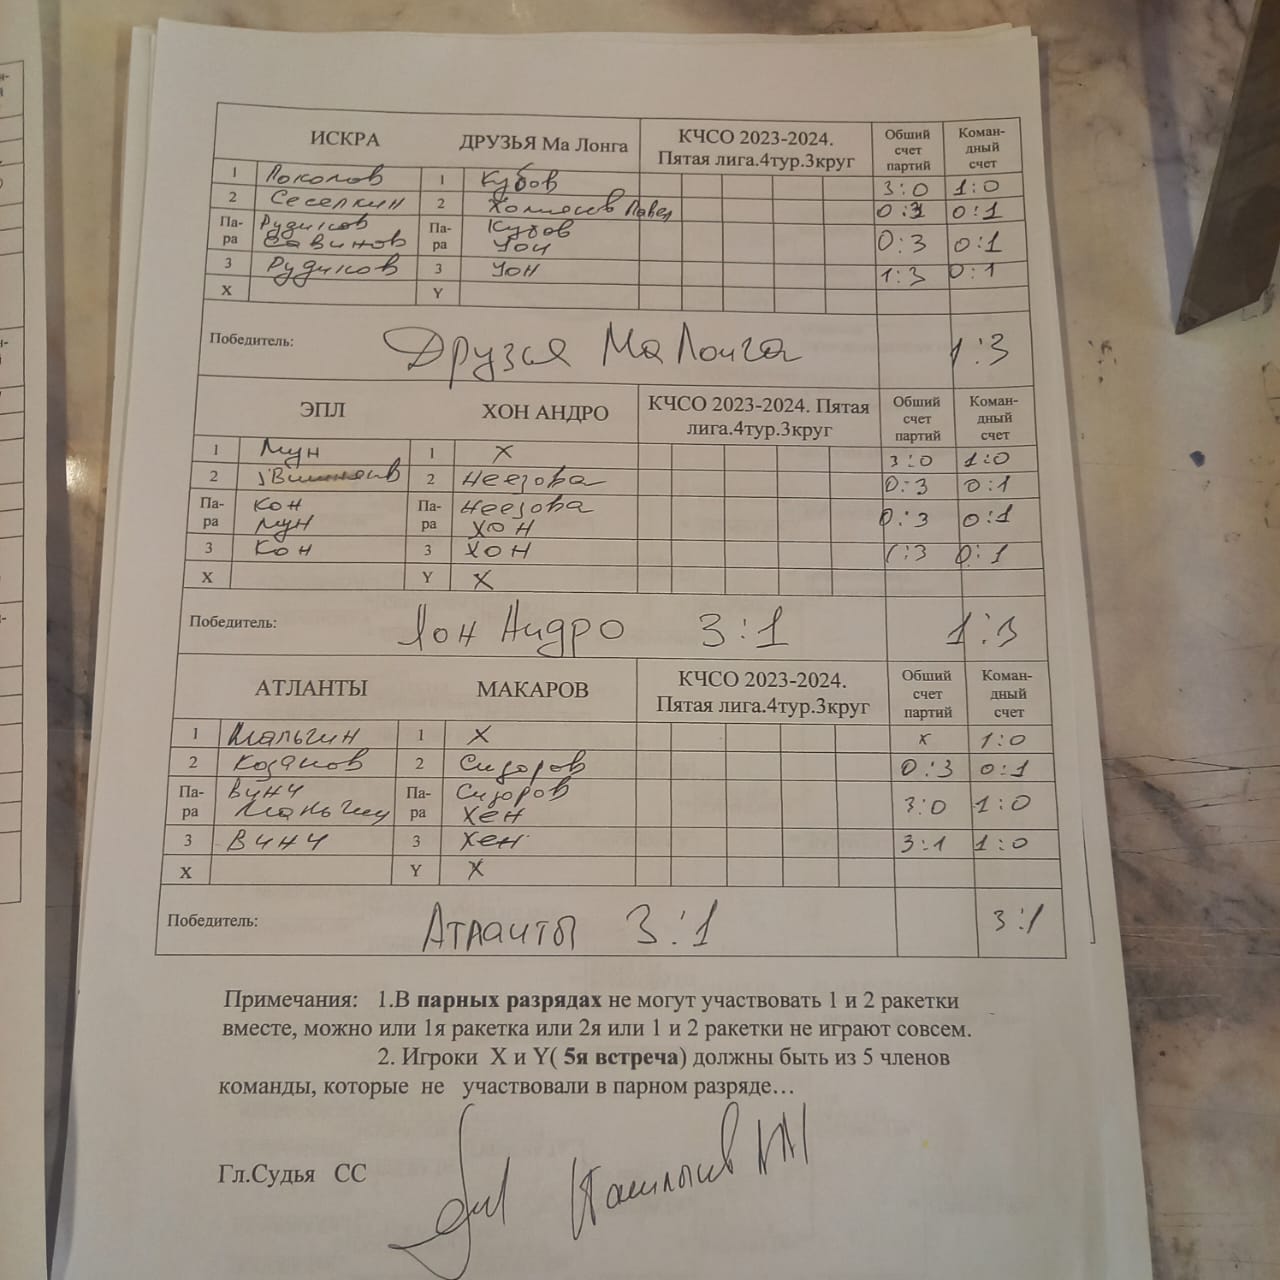 ИСКРА ДРУЗЬЯ Ма Лонга КЧСО 2023-2024. Пятая лига.4тур.3круг Общий счет партий Коман-дный счет
1 Поколов 1 Кубов 3:0 1:0
2 Сеселкин 2 Павел 0:3 0:1
Па-ра Рудиков Савинов Па-ра Кубов Чон 0:3 0:1
3 Рудиков 3 Чон 1:3 0:1
X Y
Победитель: Друзья Ма Лонга 1:3
ЭПЛ ХОН АНДРО КЧСО 2023-2024. Пятая лига.4тур.3круг Общий счет партий Коман-дный счет
1 Мун 1 X 3:0 1:0
2 2 Неезова 0:3 0:1
Па-ра Кон Мун Па-ра Неезова ХОН 0:3 0:1
3 Кон 3 ХОН 1:3 0:1
X Y X
Победитель: Хон Андро 3:1 1:3
АТЛАНТЫ МАКАРОВ КЧСО 2023-2024. Пятая лига.4тур.3круг Общий счет партий Коман-дный счет
1 Мальгин 1 X x 1:0
2 Козанов 2 Сидоров 0:3 0:1
Па-ра Винч Мальгин Па-ра Сидоров Хен 3:0 1:0
3 Винч 3 Хен 3:1 1:0
X Y X
Победитель: Атланты 3:1 3:1
Примечания: 1.В парных разрядах не могут участвовать 1 и 2 ракетки
вместе, можно или 1я ракетка или 2я или 1 и 2 ракетки не играют совсем.
2. Игроки X и Y( 5я встреча) должны быть из 5 членов
команды, которые не участвовали в парном разряде…
Гл.Судья СС